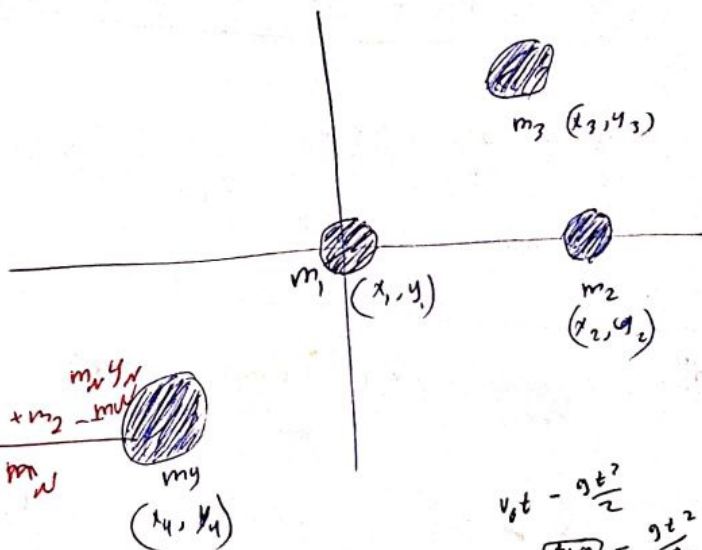 m₃ (x₃, y₃)
m₁ (x₁, y₁)
m₂
(x₂, y₂)
m_N y_N
+m₂ - m_N
m_N
m₄
(x₄, y₄)
v₀t - gt²/2
gt²